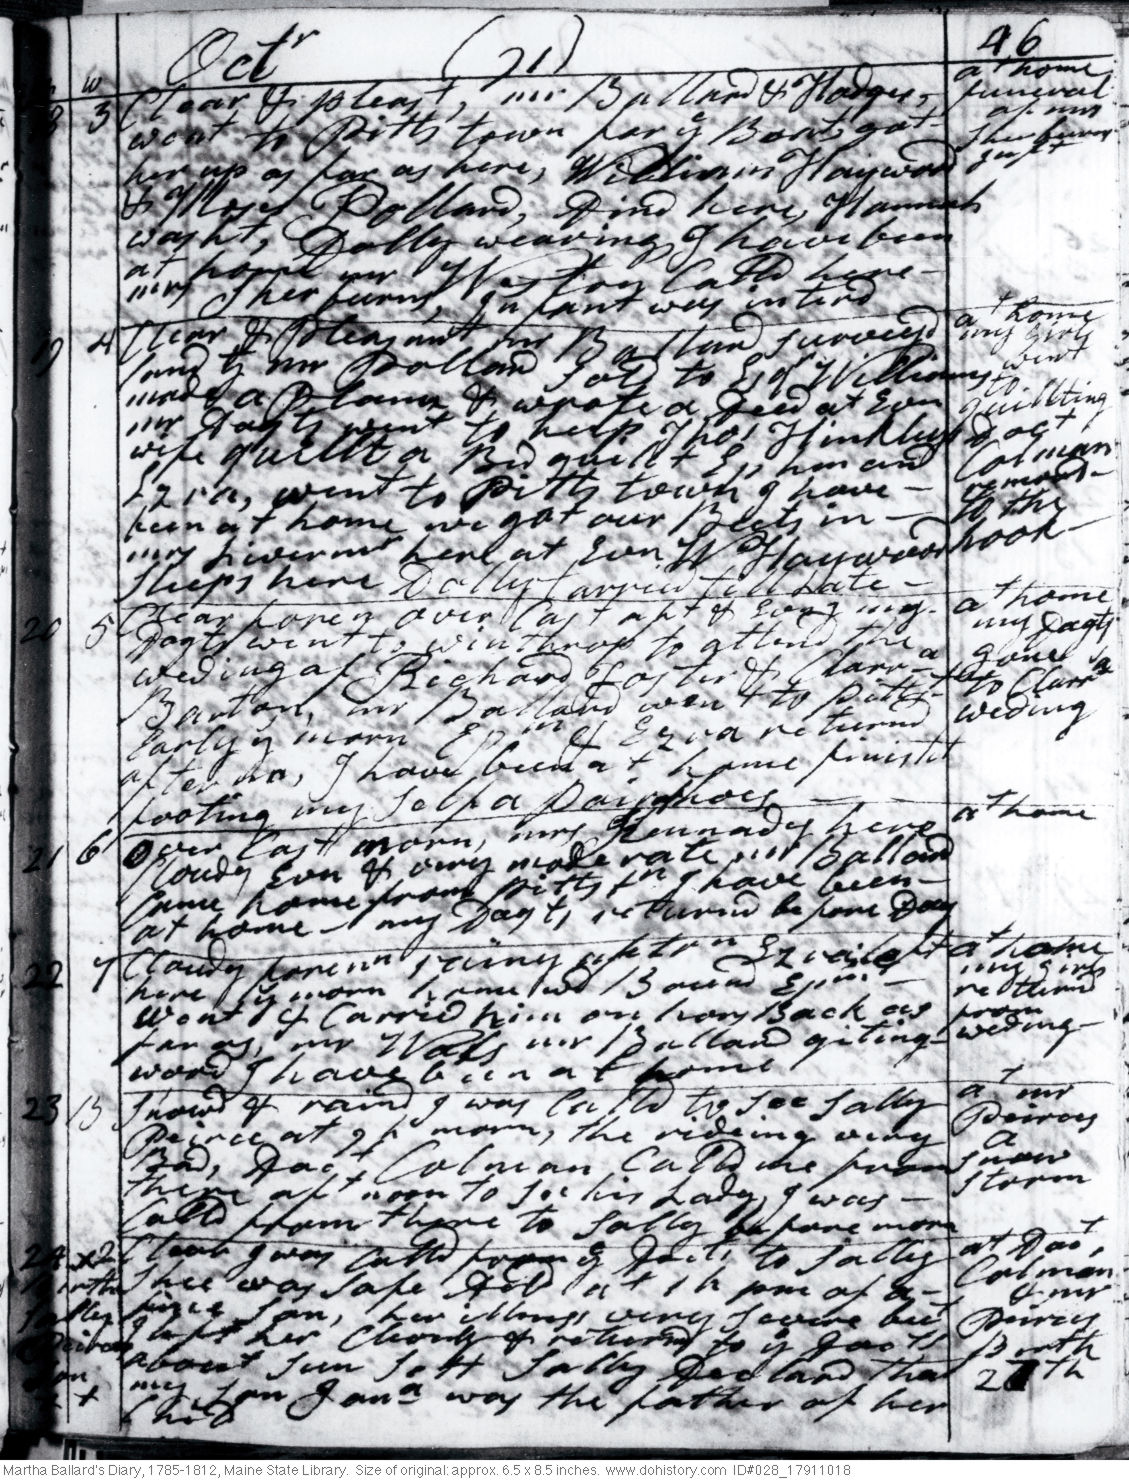 Octr (91) 46
m w
18 3 Clear & pleast, mr Ballard & Hodges,
went to Pitts town for ye Boat, got
her up as far as here, William Haywood
& Moses Pollard, Dind here, Hannah
washt, Dolly weaving, I have been
at home mr Weston Calld here
mrs Sherburns, Infant was interd
at home
funeral
of mrs
Sherburns
Infant
19 4 Clear & Pleasant mr Ballard surveyd
land for mr Pollard sold to Esqr Williams
made a Plann & wrote a Deed at Evn
my Dagts went to help Thos Hinkleys
wife quillt a Bed quilt Ephm and
Ezra, went to Pitts town I have
been at home we got our Beets in
mrs Livermor here at Evn Wm Haywood
sleeps here Dolly Tarried till Late
at home
my girls
went
to
quillting
Doct
Colman
removd
to the
hook
20 5 Clear foren over Cast aft & Evng my
Dagts went to winthrop to attend the
weding of Richard Foster & Clarra
Barton, mr Ballard went to Pitts tn
Early ys morn Ephm & Ezra returnd
after him, I have been at home finisht
footing my self a pair hoes
at home
my Dagts
gone
to Clarra
weding
21 6 Over Cast morn, mrs Kennady here
Cloudy Evn & very moderate mr Ballard
Came home from Pitts tn I have been
at home my Dagts returnd before Day
at home
22 7 Cloudy foren rainy afton Ezra left
here ys morn home wd Bound Ephm
went & Carried him on hors Back as
far as, mr Wals mr Ballard giting
word I have been at home
at home
my girls
returnd
from
weding
23 B Snowd & raind I was Calld to See Sally
Peirce at 9 h morn, the rideing very
Bad, Doct Colman Calld me from
there aft noon to See his Lady, I was
Calld from there to Sally before morn
at mr
Peircys
a
snow
storm
24 x2 Clear I was Calld from ye Docts to Sally
Shee was Safe Dld at 1 h pm of a
fine son, her illness very severe but
I left her Cleverly & returnd to ye Docts
about Sun Sett Sally Declard that
my Son Jona was the father of her
Child
Birth
Salley
Peirces
Son
x x
at Doct,
Colmans
& mr
Peircys
Birth
27th
Martha Ballard's Diary, 1785-1812, Maine State Library. Size of original: approx. 6.5 x 8.5 inches. www.dohistory.com ID#028_17911018